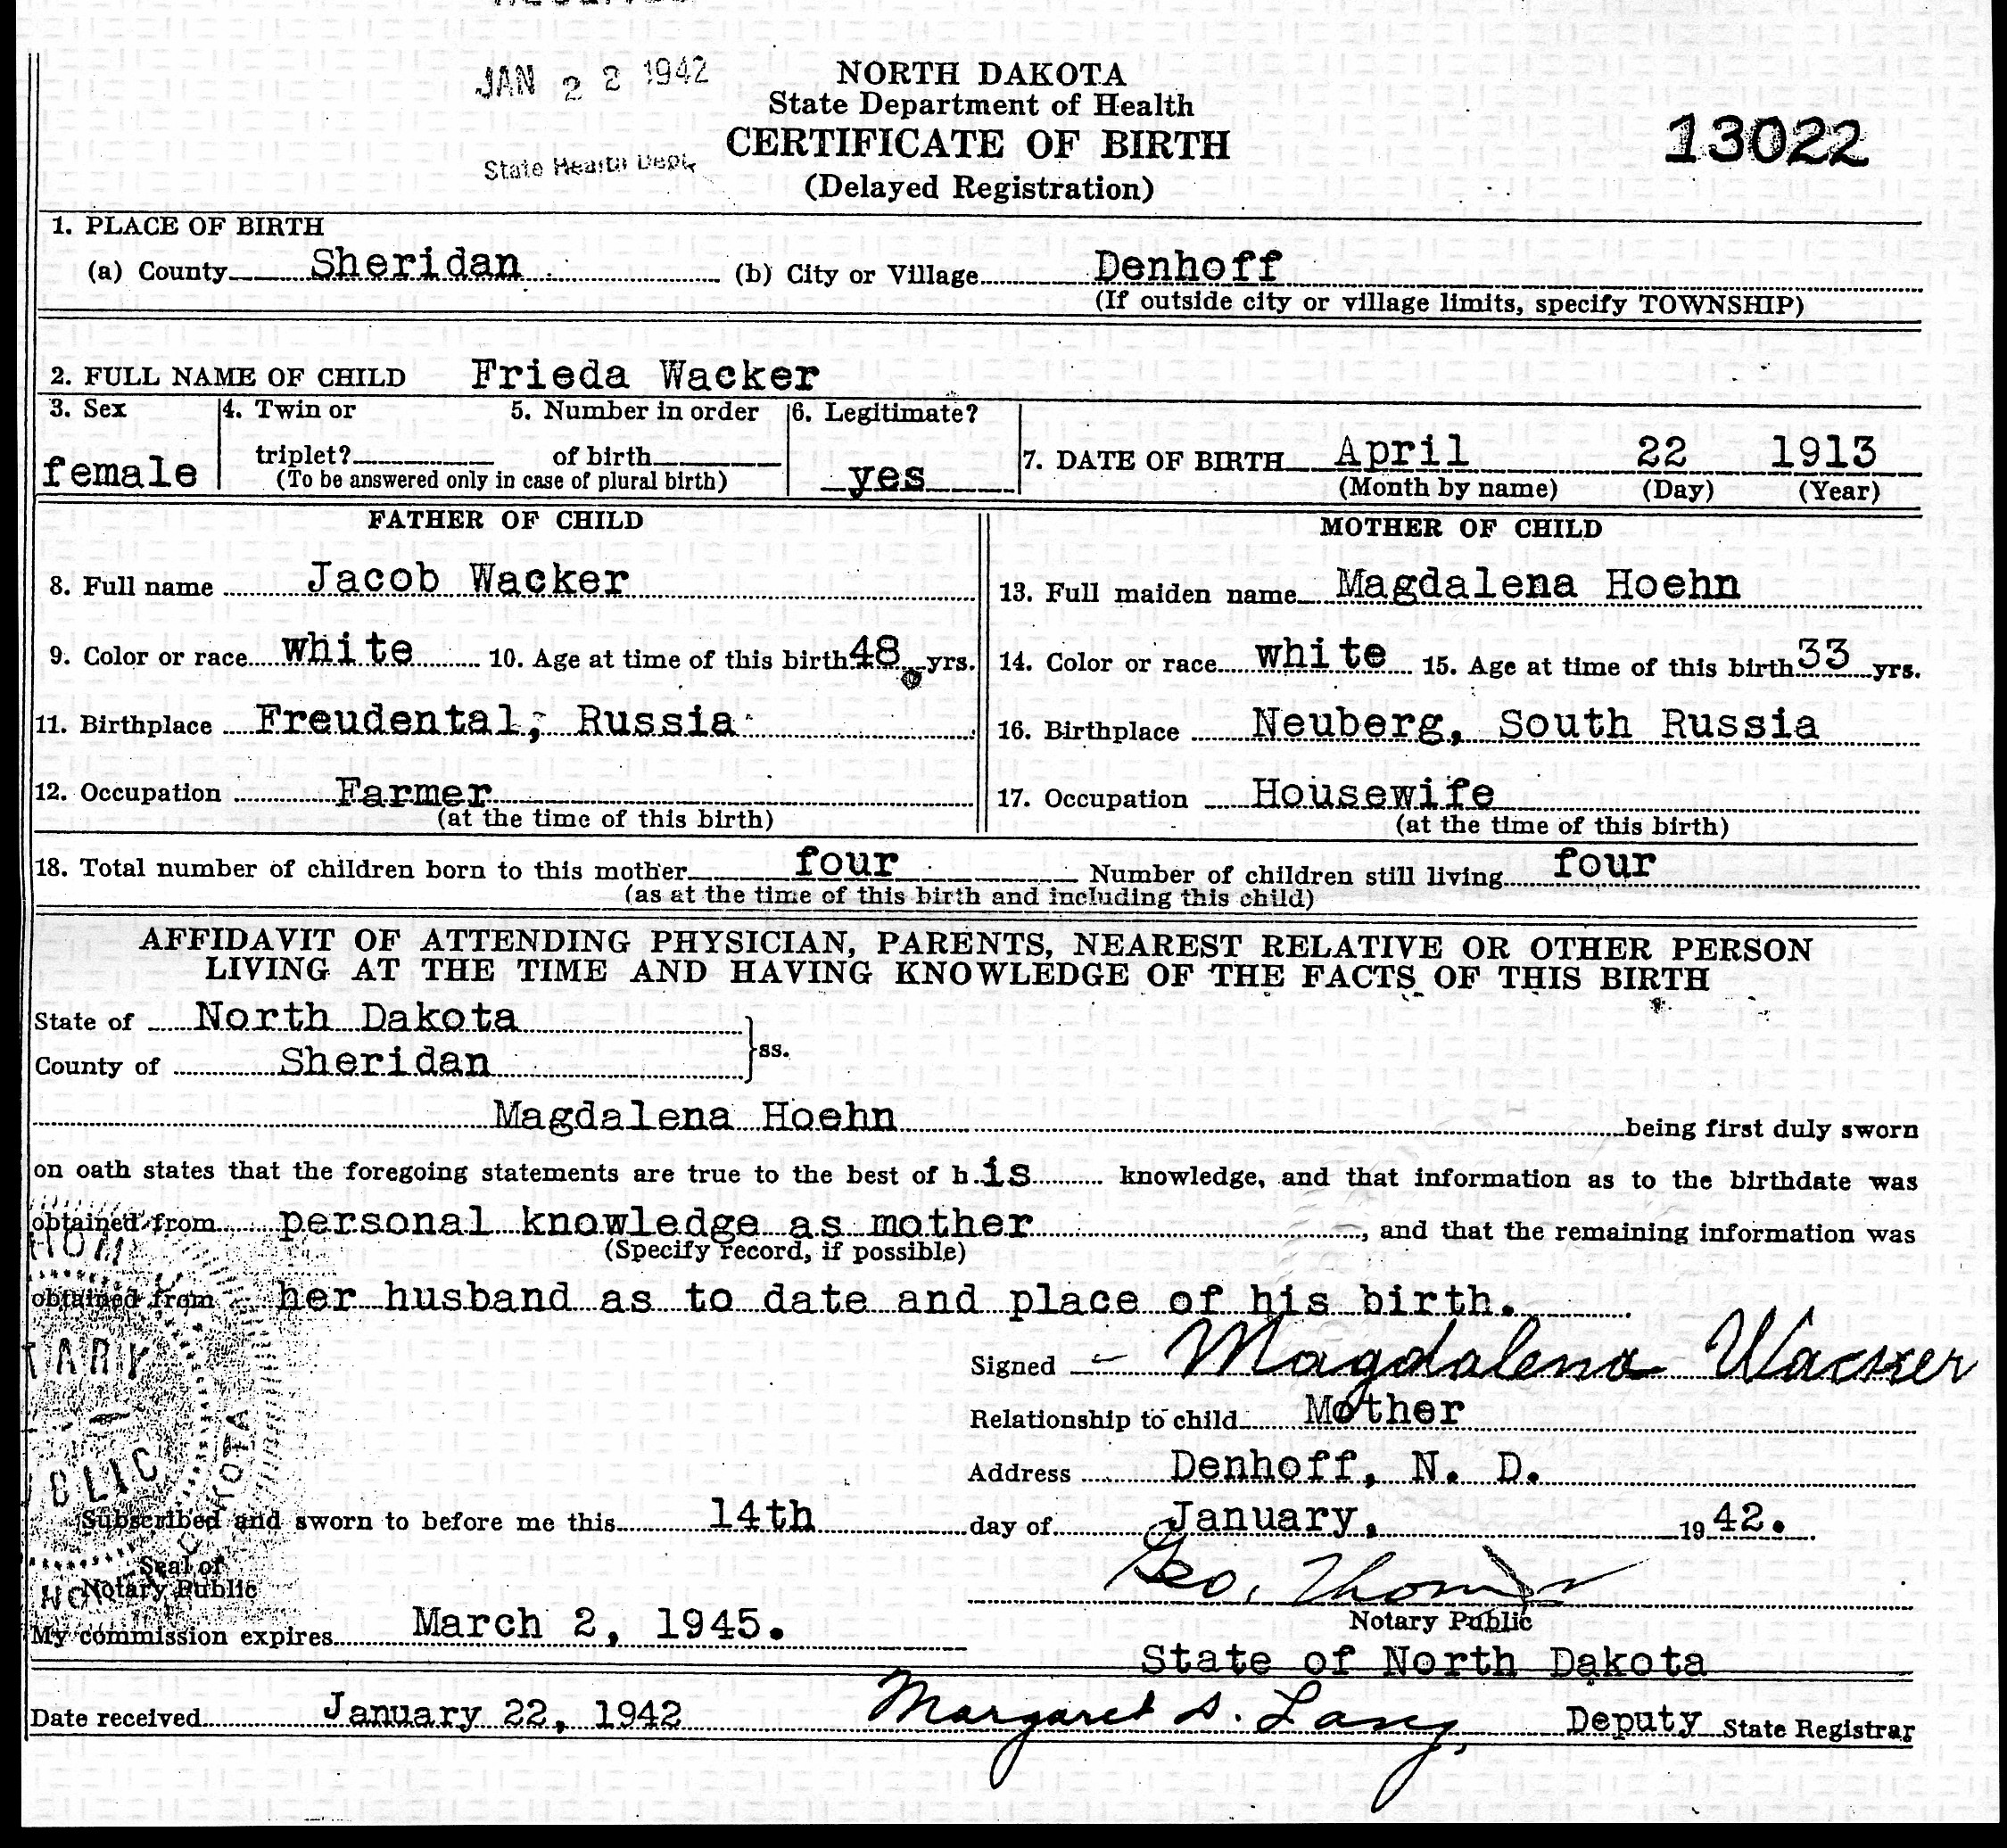 JAN 2 2 1942
State Health Dept.
NORTH DAKOTA
State Department of Health
CERTIFICATE OF BIRTH
(Delayed Registration)
13022
1. PLACE OF BIRTH
(a) County Sheridan (b) City or Village Denhoff
(If outside city or village limits, specify TOWNSHIP)
2. FULL NAME OF CHILD Frieda Wacker
3. Sex 4. Twin or 5. Number in order 6. Legitimate?
female triplet? of birth yes 7. DATE OF BIRTH April 22 1913
(To be answered only in case of plural birth) (Month by name) (Day) (Year)
FATHER OF CHILD MOTHER OF CHILD
8. Full name Jacob Wacker 13. Full maiden name Magdalena Hoehn
9. Color or race white 10. Age at time of this birth 48 yrs. 14. Color or race white 15. Age at time of this birth 33 yrs.
11. Birthplace Freudental, Russia 16. Birthplace Neuberg, South Russia
12. Occupation Farmer 17. Occupation Housewife
(at the time of this birth) (at the time of this birth)
18. Total number of children born to this mother four Number of children still living four
(as at the time of this birth and including this child)
AFFIDAVIT OF ATTENDING PHYSICIAN, PARENTS, NEAREST RELATIVE OR OTHER PERSON
LIVING AT THE TIME AND HAVING KNOWLEDGE OF THE FACTS OF THIS BIRTH
State of North Dakota
County of Sheridan } ss.
Magdalena Hoehn being first duly sworn
on oath states that the foregoing statements are true to the best of h is knowledge, and that information as to the birthdate was
obtained from personal knowledge as mother, and that the remaining information was
(Specify record, if possible)
obtained from her husband as to date and place of his birth.
Signed Magdalena Wacker
Relationship to child Mother
Address Denhoff, N. D.
Subscribed and sworn to before me this 14th day of January, 19 42.
Seal of
Notary Public
Geo.
Notary Public
My commission expires March 2, 1945.
State of North Dakota
Date received January 22, 1942 Margaret S. Lang, Deputy State Registrar